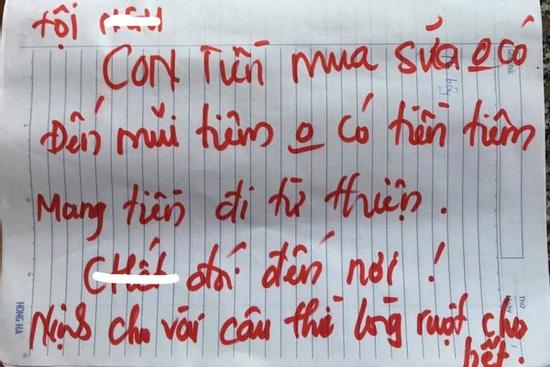 tội
CON TIỀN mua sữa o có
Đến mũi tiêm o có tiền tiêm
Mang tiền đi từ thiện.
Chết đói đến nơi!
Nịnh cho vài câu thì lòng ruột cho
hết!
HONG HA
Thứ